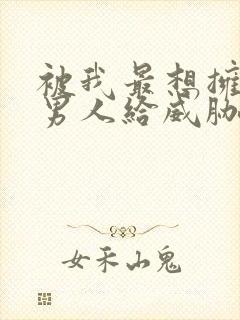 被我最想擁
男人給威脅
女禾山鬼